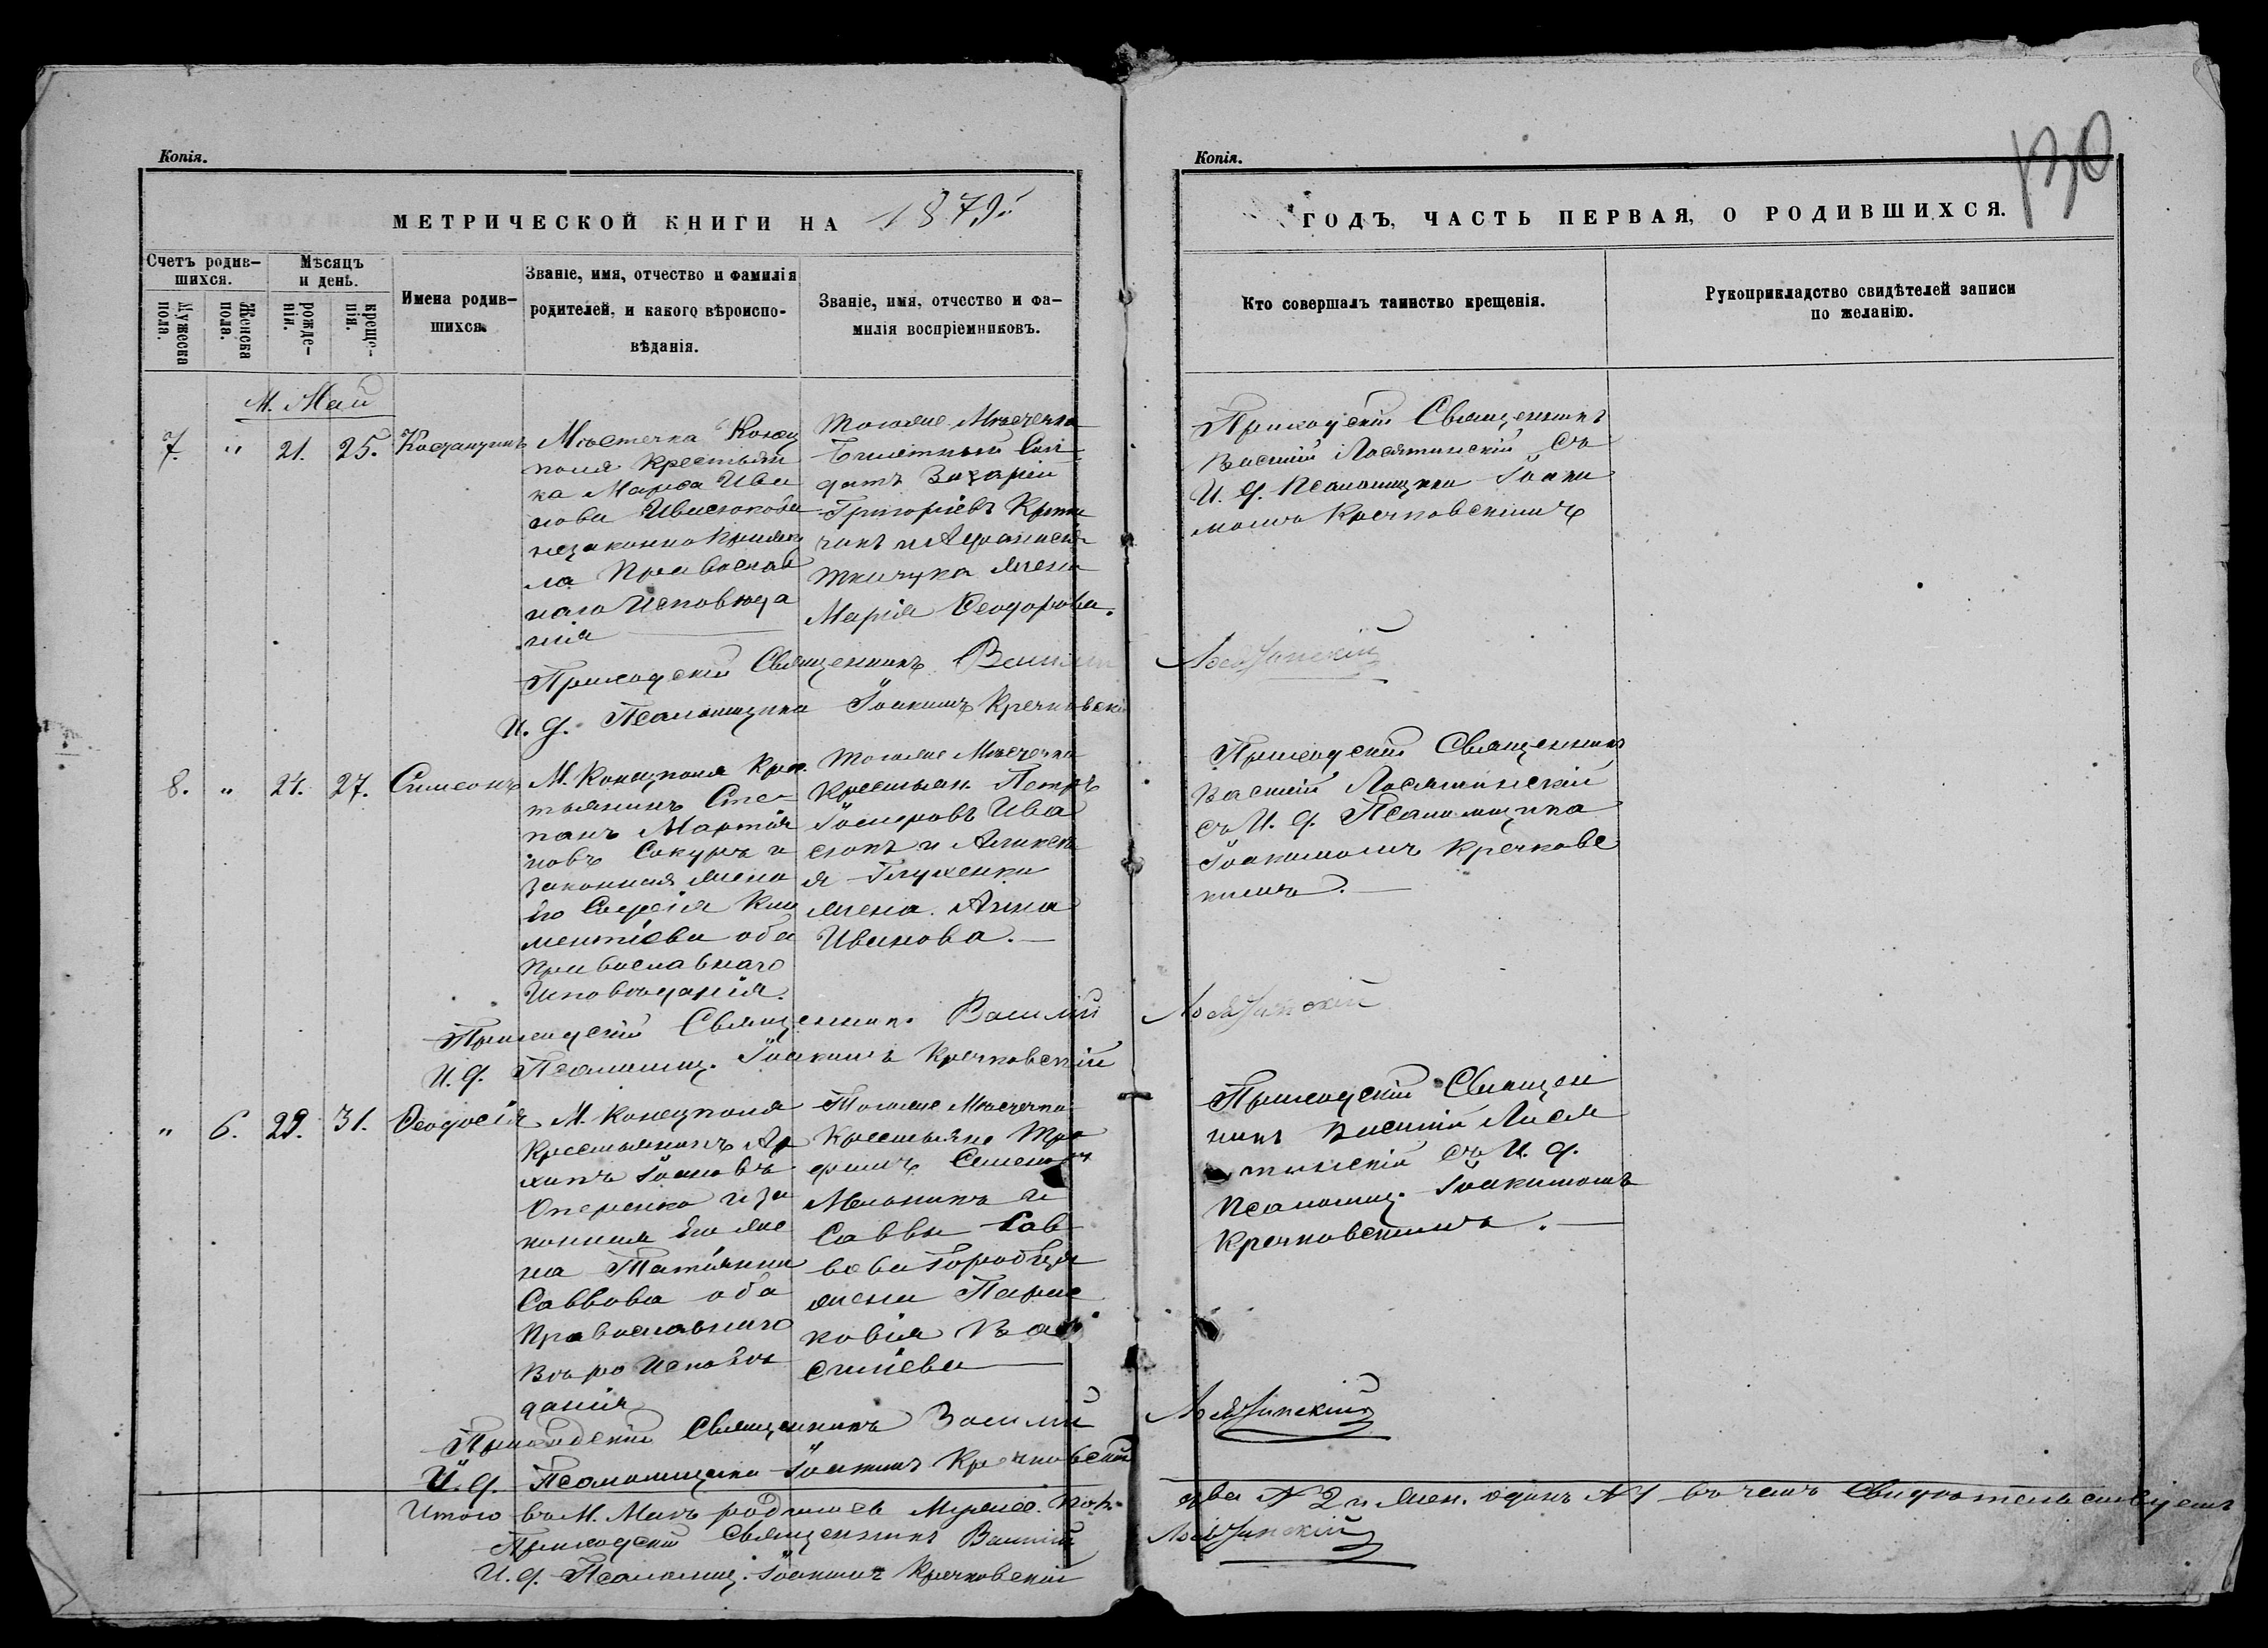 Копія.
МЕТРИЧЕСКОЙ КНИГИ НА 1879й
Счетъ родив-
шихся.
Мужеска
пола.
Женска
пола.
Мѣсяцъ
и день.
рожде-
нія.
креще-
нія.
Имена родив-
шихся.
Званіе, имя, отчество и фамилія
родителей, и какого вѣроиспо-
вѣданія.
Званіе, имя, отчество и фа-
милія воспріемниковъ.
М. Май
7. " 21. 25. Костантинъ
Мѣстечка Конец
поля Крестьян
ка Марѳа Ива
нова
незаконно прижи
ла Православ
наго Исповѣда
нія
Тогоже Мѣстечка
Билетный Сол
датъ Захарій
Григоріевъ
и Афанасія
Ткачука жена
Марія Ѳеодорова.
Приходскій Священникъ Василій
И. д. Псаломщика Іоакимъ Кречковскій
8. " 24. 27. Симеонъ
М. Конецполя Крес
тьянинъ Сте-
панъ Мартія
новъ Сокуръ и
законная жена
Его Софія Кли
ментіева оба
Православнаго
Исповѣданія.
Тогоже Мѣстечка
Крестьян. Петръ
Іосифовъ Ива
сюкъ и Алексѣ
я Глущенка
жена Анна
Иванова.
Приходскій Священник. Василій
И. д. Псаломщ. Іоакимъ Кречковскій
" 6. 29. 31. Ѳеодосія
М. Конецполя
Крестьянинъ Ар
хипъ Іоановъ
и за
конная Его же
на Татіяна
Саввова оба
Православнаго
Вѣро Исповѣ
данія
Тогоже Мѣстечка
Крестьяне Тро
фимъ Семеновъ
Мельникъ и
Саввы Сав
вова Городеця
жена Парас
ковія Ва
силіева
Приходскій Священникъ Василій
И. д. Псаломщика Іоакимъ Кречковскій
Итого въ М. Маѣ родилися Мужес. пол.
Приходскій Священникъ Василій
И. д. Псаломщ. Іоакимъ Кречковскій
Копія.
130
ГОДЪ, ЧАСТЬ ПЕРВАЯ, О РОДИВШИХСЯ.
Кто совершалъ таинство крещенія.
Рукоприкладство свидѣтелей записи
по желанію.
Приходскій Священникъ
Василій Лосятинскій съ
И. д. Псаломщика Іоаки
момъ Кречковскимъ
Лосятинскій
Приходскій Священникъ
Василій Лосятинскій
съ И. д. Псаломщика
Іоакимомъ Кречковс
кимъ.
Лосятинскій
Приходскій Священ
никъ Василій Лося
тинскій съ И. д.
Псаломщ. Іоакимомъ
Кречковскимъ.
Лосятинскій
два № 2 и жен. одинъ № 1 въ чемъ Свидѣтельствуемъ
Лосятинскій